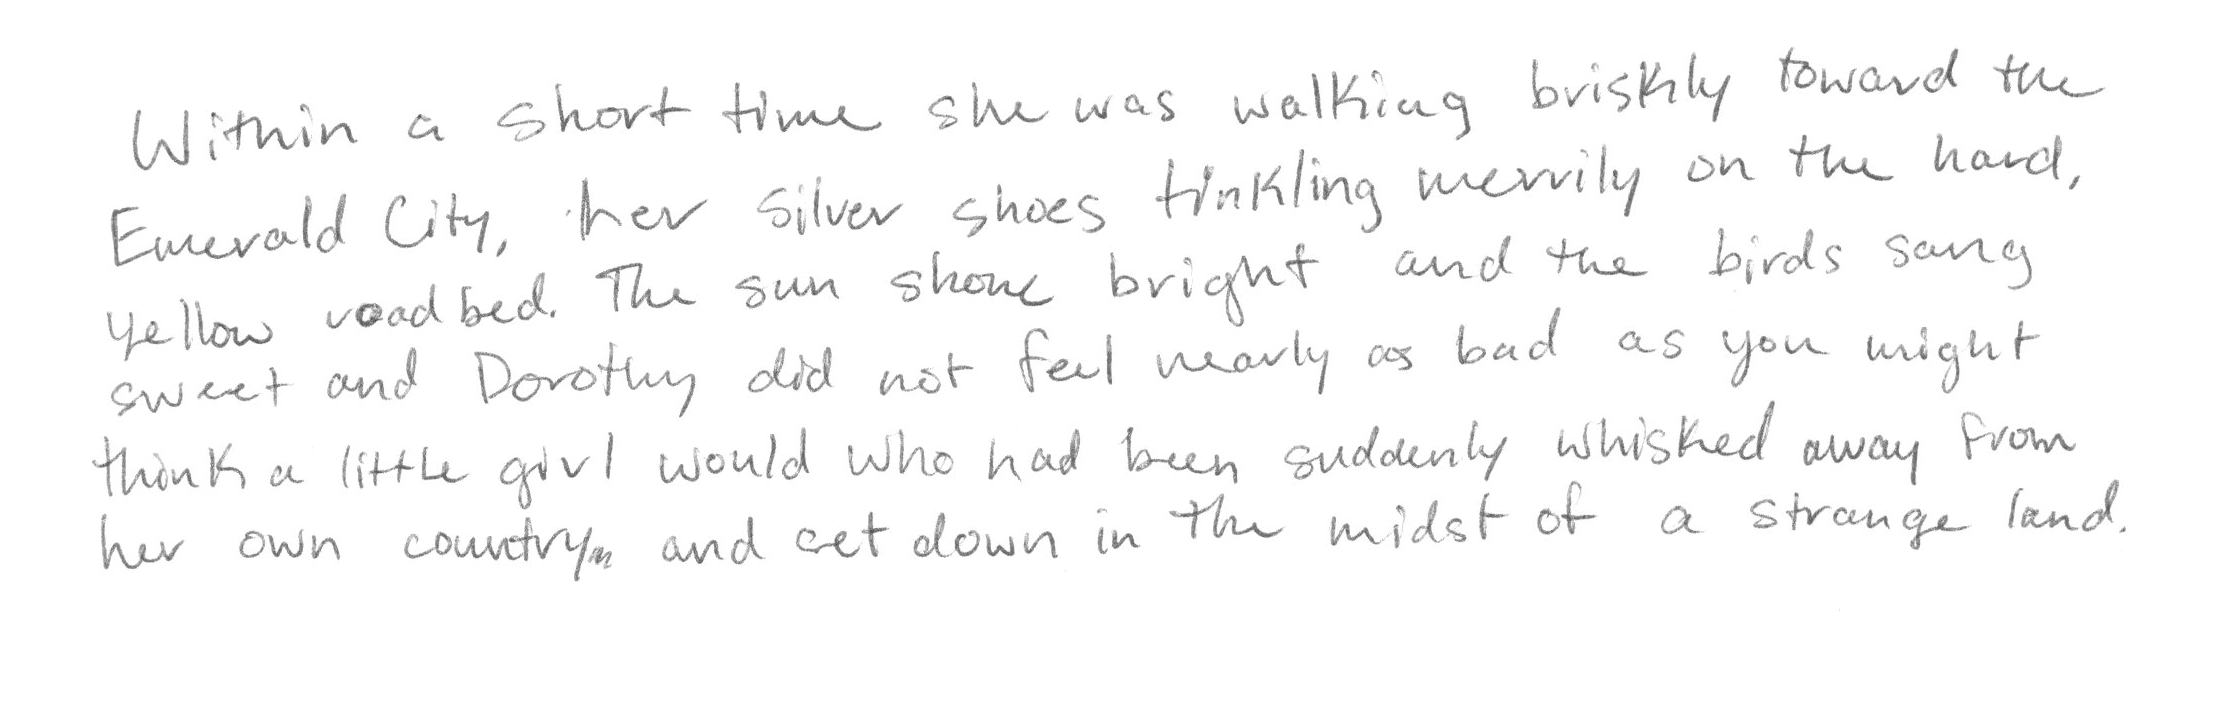 Within a short time she was walking briskly toward the
Emerald City, her silver shoes tinkling merrily on the hard,
yellow road bed. The sun shone bright and the birds sang
sweet and Dorothy did not feel nearly as bad as you might
think a little girl would who had been suddenly whisked away from
her own country and set down in the midst of a strange land.